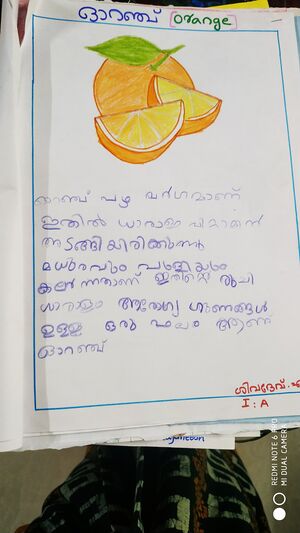 ഓറഞ്ച് Orange
ഓറഞ്ച് പഴ വർഗമാണ്
ഇതിൽ ധാരാളം വിറ്റാമിൻ
അടങ്ങിയിരിക്കുന്നു
മധുരവും പുളിയും
കലർന്നതാണ് ഇതിന്റെ രുചി
ധാരാളം ആരോഗ്യ ഗുണങ്ങൾ
ഉള്ള ഒരു ഫലം ആണ്
ഓറഞ്ച്
ശിവദേവ്
I : A
REDMI NOTE 6 PRO
MI DUAL CAMERA